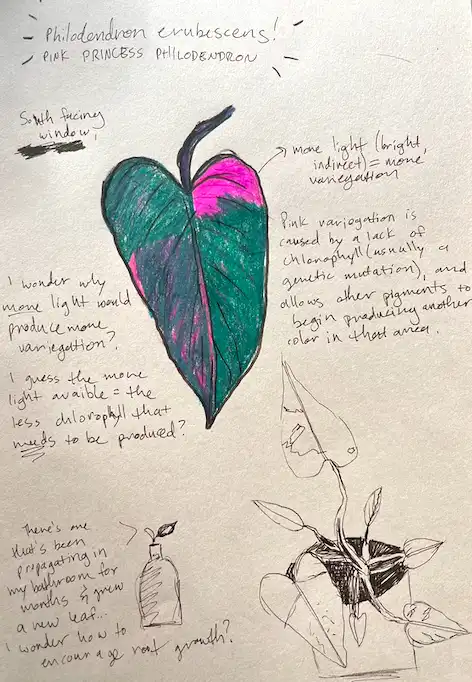 Philodendron erubescens!
PINK PRINCESS PHILODENDRON
South facing
window,
more light (bright,
indirect) = more
variegation
Pink variegation is
caused by a lack of
chlorophyll (usually a
genetic mutation), and
allows other pigments to
begin producing another
color in that area.
I wonder why
more light would
produce more
variegation?
I guess the more
light avaible = the
less chlorophyll that
needs to be produced?
There's one
that's been
propagating in
my bathroom for
months & grew
a new leaf...
I wonder how to
encourage root growth?